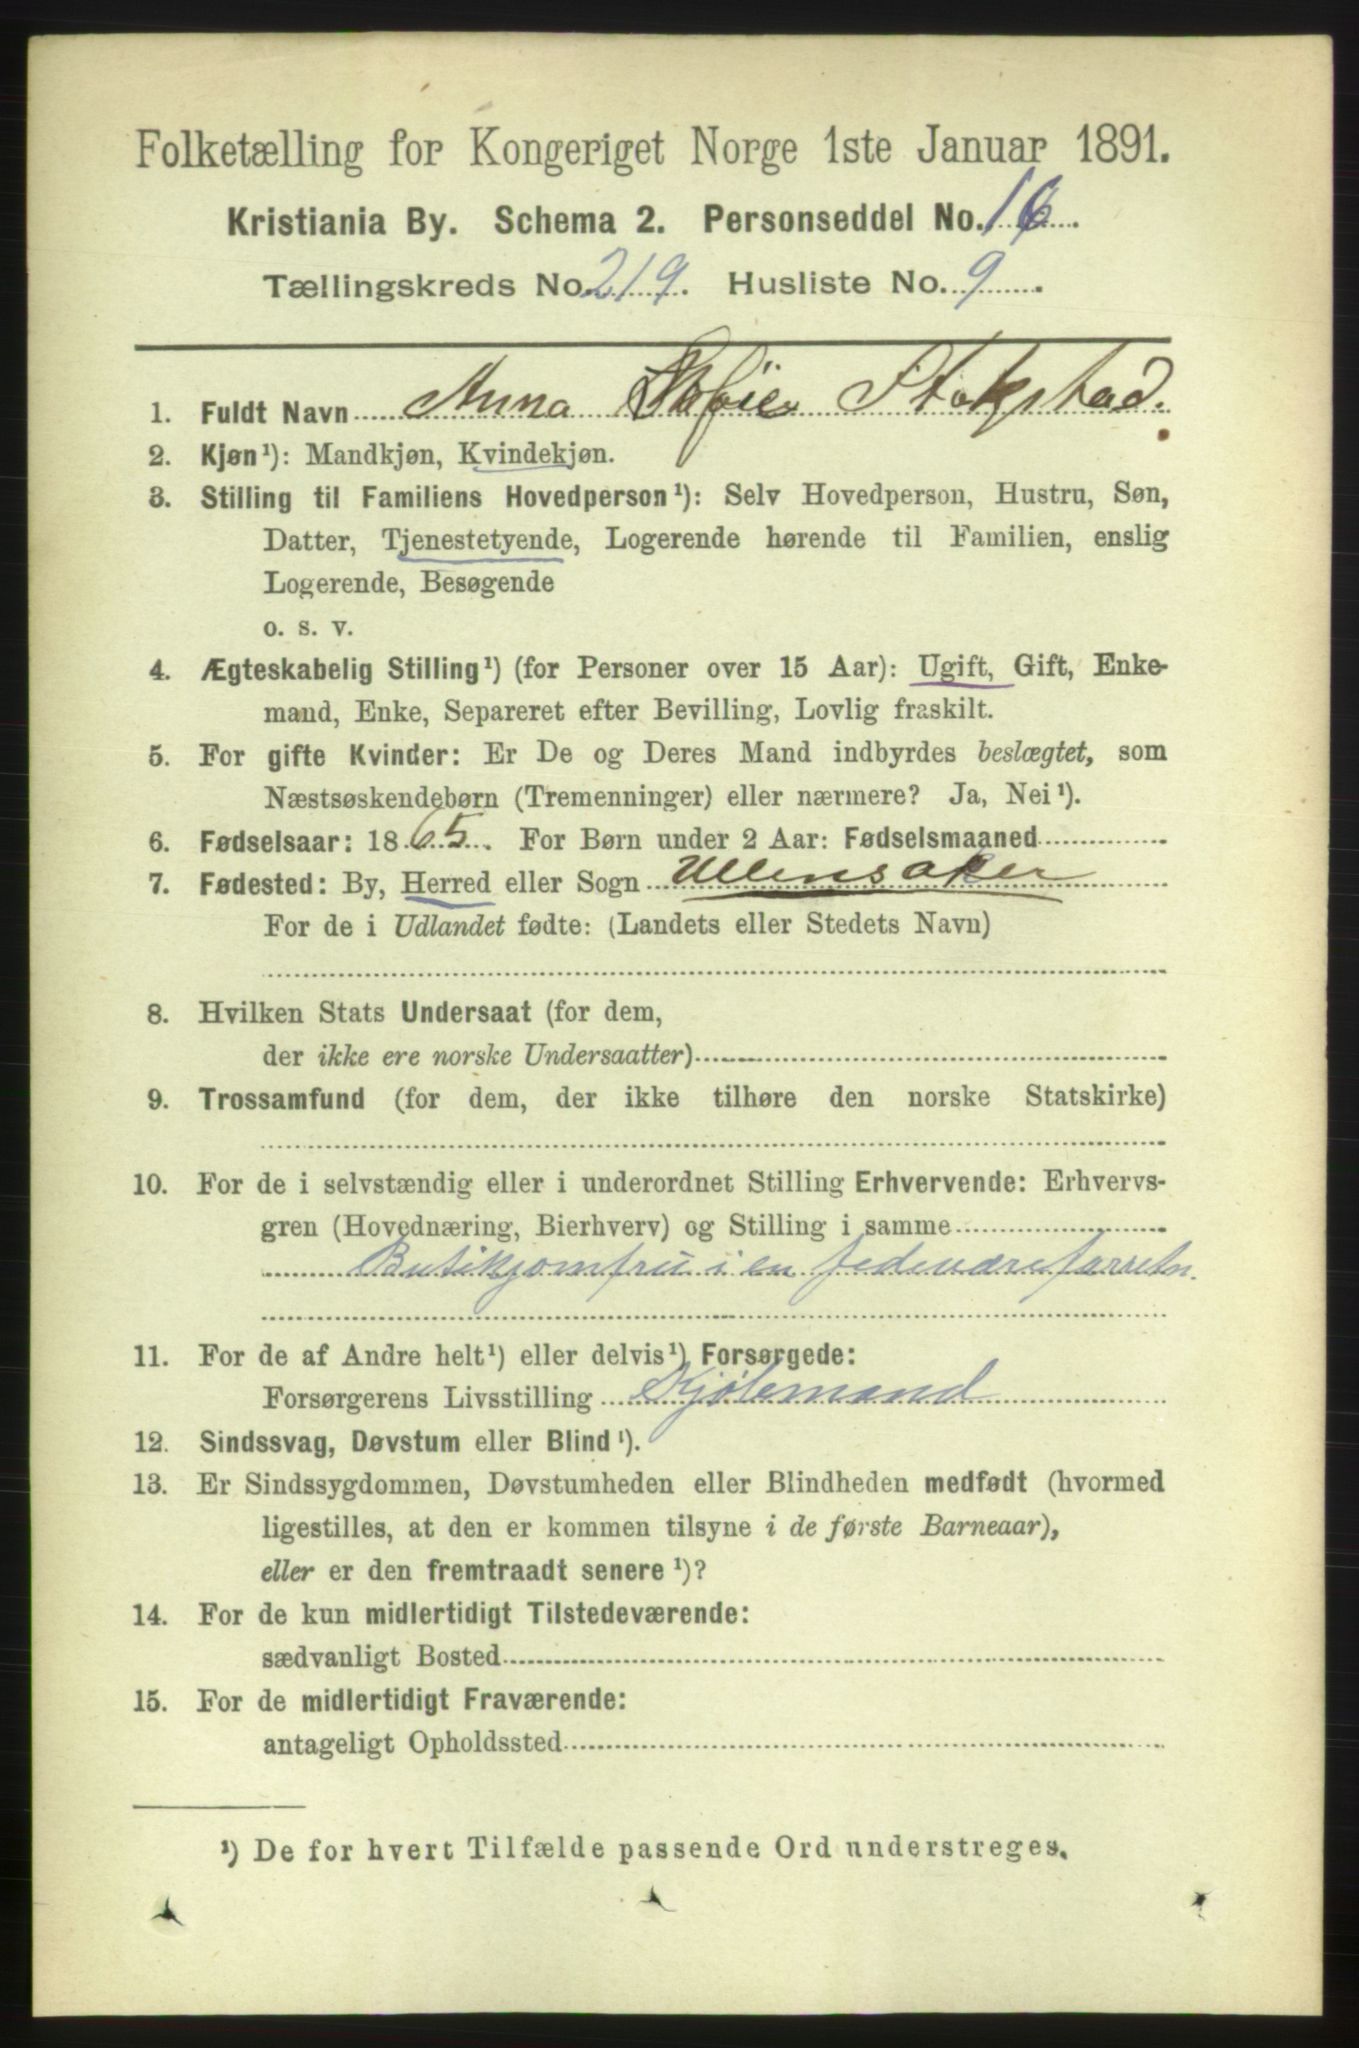 Folketælling for Kongeriget Norge 1ste Januar 1891.
Kristiania By. Schema 2. Personseddel No. 16.
Tællingskreds No. 219. Husliste No. 9
1. Fuldt Navn Anna Sofie Stokstad.
2. Kjøn¹): Mandkjøn, Kvindekjøn.
3. Stilling til Familiens Hovedperson¹): Selv Hovedperson, Hustru, Søn,
Datter, Tjenestetyende, Logerende hørende til Familien, enslig
Logerende, Besøgende
o. s. v.
4. Ægteskabelig Stilling¹) (for Personer over 15 Aar): Ugift, Gift, Enke-
mand, Enke, Separeret efter Bevilling, Lovlig fraskilt.
5. For gifte Kvinder: Er De og Deres Mand indbyrdes beslægtet, som
Næstsøskendebørn (Tremenninger) eller nærmere? Ja, Nei¹).
6. Fødselsaar: 1865. For Børn under 2 Aar: Fødselsmaaned
7. Fødested: By, Herred eller Sogn Ullensaker
For de i Udlandet fødte: (Landets eller Stedets Navn)
8. Hvilken Stats Undersaat (for dem,
der ikke ere norske Undersaatter)
9. Trossamfund (for dem, der ikke tilhøre den norske Statskirke)
10. For de i selvstændig eller i underordnet Stilling Erhvervende: Erhvervs-
gren (Hovednæring, Bierhverv) og Stilling i samme
Butikjomfru i en fedevareforretn.
11. For de af Andre helt¹) eller delvis¹) Forsørgede:
Forsørgerens Livsstilling
12. Sindssvag, Døvstum eller Blind¹).
13. Er Sindssygdommen, Døvstumheden eller Blindheden medfødt (hvormed
ligestilles, at den er kommen tilsyne i de første Barneaar),
eller er den fremtraadt senere¹)?
14. For de kun midlertidigt Tilstedeværende:
sædvanligt Bosted
15. For de midlertidigt Fraværende:
antageligt Opholdssted
¹) De for hvert Tilfælde passende Ord understreges.